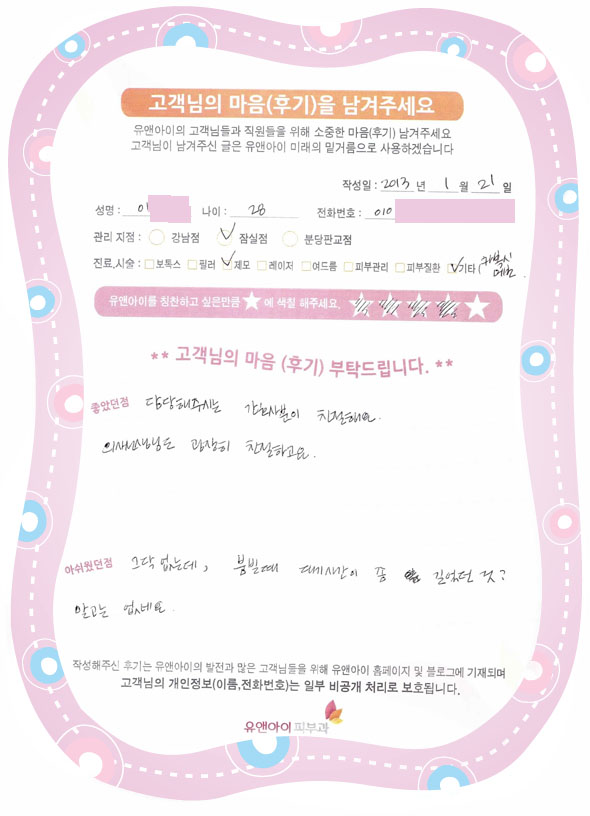 고객님의 마음(후기)을 남겨주세요
유앤아이의 고객님들과 직원들을 위해 소중한 마음(후기) 남겨주세요
고객님이 남겨주신 글은 유앤아이 미래의 밑거름으로 사용하겠습니다
작성일 : 2013 년 1 월 21 일
성명 : 이 나이 : 28 전화번호 : 010
관리 지점 : 강남점 잠실점 분당판교점
진료,시술 : 보톡스 필러 제모 레이저 여드름 피부관리 피부질환 기타(
유앤아이를 칭찬하고 싶은만큼 ★ 에 색칠 해주세요.
** 고객님의 마음 (후기) 부탁드립니다. **
좋았던점 담당해주시는 간호사분이 친절해요.
의사선생님도 굉장히 친절하고요.
아쉬웠던점 그닥 없는데, 붐빌때 대기시간이 좀 길었던 것?
말고는 없네요.
작성해주신 후기는 유앤아이의 발전과 많은 고객님들을 위해 유앤아이 홈페이지 및 블로그에 기재되며
고객님의 개인정보(이름,전화번호)는 일부 비공개 처리로 보호됩니다.
유앤아이피부과